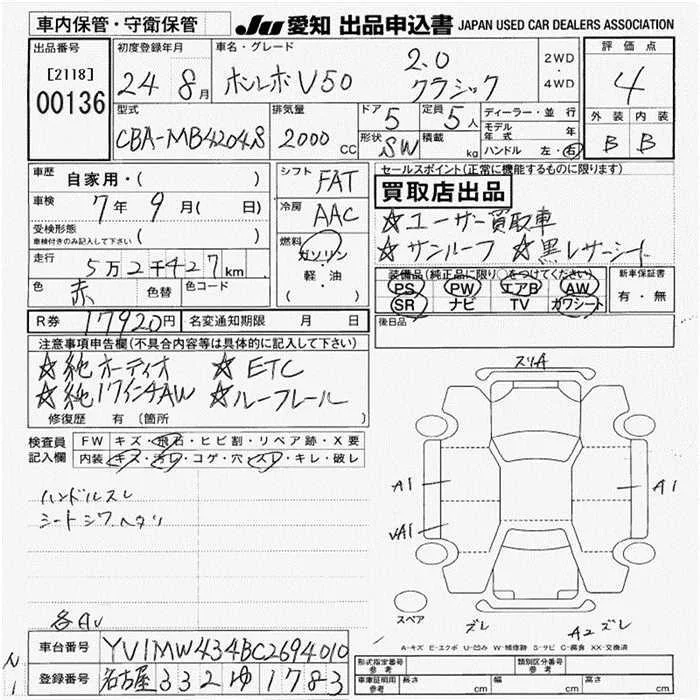 車内保管・守衛保管
JU 愛知 出品申込書 JAPAN USED CAR DEALERS ASSOCIATION
出品番号
[2118]
00136
初度登録年月
24 8月
車名・グレード
ボルボ V50 2.0 クラシック
2WD
・
4WD
評価点
4
外装 内装
B B
型式
CBA-MB4204S
排気量
2000 CC
ドア 5
形状 SW
定員 5人
積載 kg
ディーラー・並行
モデル年式 年
ハンドル 左・右
車歴 自家用・( )
車検 7年9月( 日)
受検形態
車検付きのみ記入して下さい ( )
走行 5万2千427km
色 赤 色替 色コード
シフト FAT
冷房 AAC
燃料
ガソリン
・
軽・油
( )
セールスポイント(正常に機能するものに限ります)
買取店出品
☆ユーザー買取車
☆サンルーフ ☆黒レザーシート
装備品(純正品に限り○をつけてください)
PS PW エアB AW
SR ナビ TV カワシート
新車保証書
有・無
後日品
R券 17920円 名変通知期限 月 日
注意事項申告欄(不具合内容等は具体的に記入して下さい)
☆純オーディオ ☆ETC
☆純17インチAW ☆ルーフレール
修復歴 有 (箇所 )
検査員記入欄
FW キズ・飛石・ヒビ割・リペア跡・X要
内装 キズ・汚レ・コゲ・穴・スレ・キレ・破レ
ハンドルスレ
シートシワヘタリ
各AU
スリA
A1 A1
UA1
スペア
ズレ A2 ズレ
A-キズ E-エクボ U-凹み W-補修跡 S-サビ C-腐食 XX-交換済
車台番号 YV1MW434BC2694010
登録番号 名古屋 332 ゆ 1783
形式指定番号 参考 類別区分番号 参考
車庫証明用 参考 長さ cm 幅 cm 高さ cm